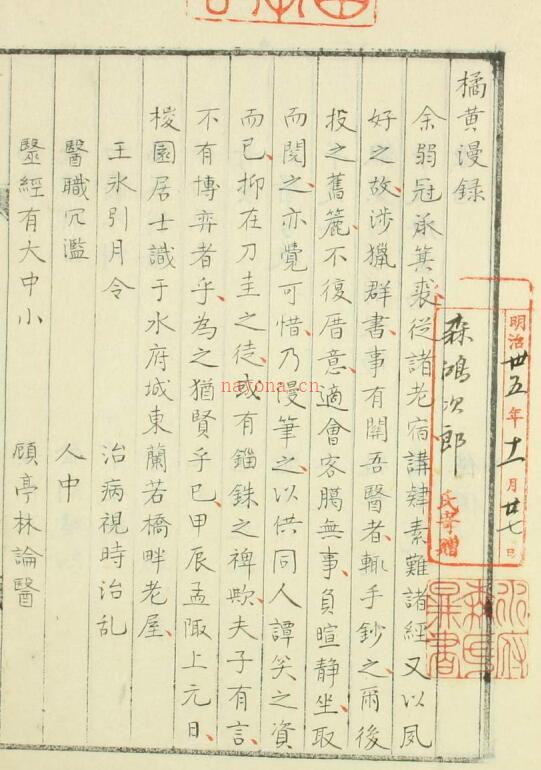 明治卅五年十一月廿七日
森鴻次郎
氏寄贈
橘黄漫録
余弱冠承箕裘從諸老宿講肄素難諸經又以夙
好之故、涉獵群書事有關吾醫者、輒手鈔之、爾後
投之舊簏、不復厝意、適會客臈無事、負暄静坐、取
而閱之、亦覺可惜乃漫筆之、以供同人譚笑之資
而已、抑在刀圭之徒、或有錙銖之裨歟、夫子有言、
不有博弈者乎、為之猶賢乎已、甲辰孟陬上元日、
棱園居士識于水府城東蘭若橋畔老屋、
王氷引月令　治病視時治亂
醫職冗濫　人中
毉經有大中小　顧亭林論醫
nayona.cn